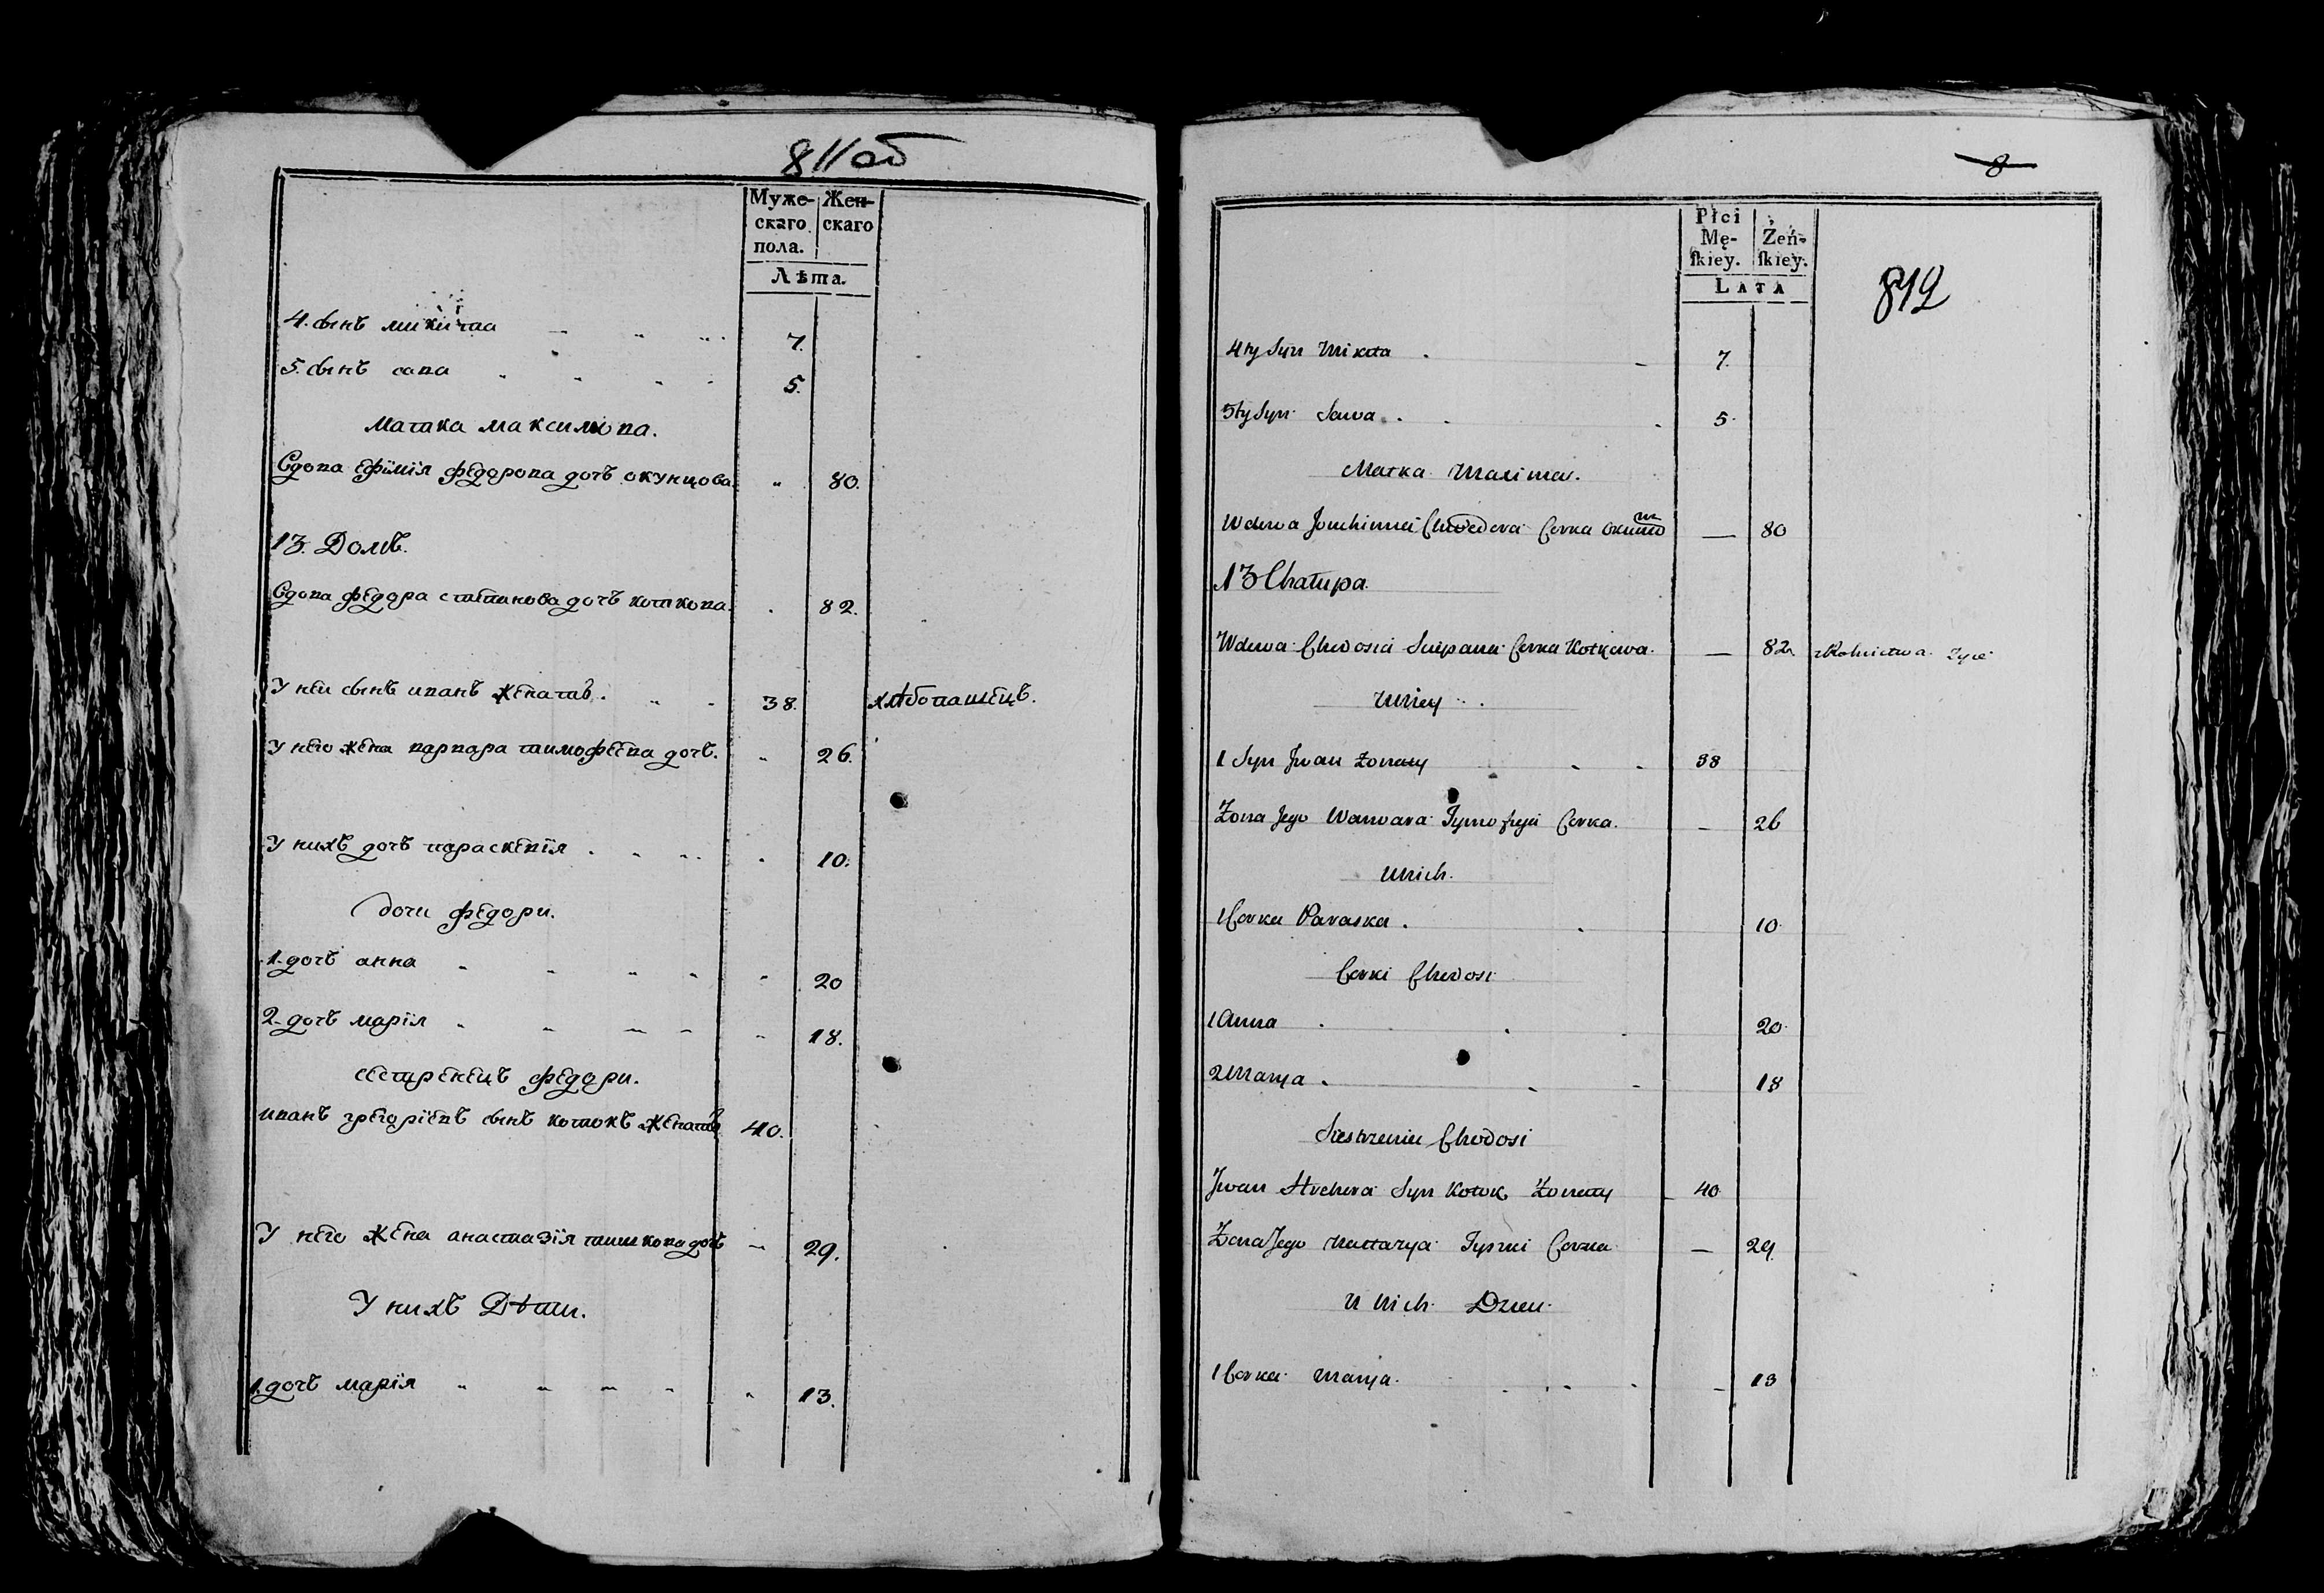 811об
Муже-
скаго
пола.
Жен-
скаго
Лѣта.
4. сынъ микита 7.
5. сынъ сава 5.
Матка максимова.
Вдова Ефимія федорова дочъ окунцова 80.
13. Домъ.
Вдова федора степанова дочъ коткова. 82.
У неи сынъ иванъ женатъ. 38. хлѣбопашецъ.
У него жена варвара тимофеева дочъ. 26.
У нихъ дочъ параскевія 10.
дочи федори.
1. дочъ анна 20
2. дочъ марія 18.
сестренецъ федори.
иванъ григоріевъ сынъ котокъ женатъ 40.
У него жена анастазія тишкова дочъ 29.
У нихъ Дѣти.
1. дочъ марія 13.
8
812
Płci
Mę-
ſkiey.
Żeń-
ſkiey.
LATA
4ty Syn Mikita 7.
5ty Syn Sawa 5.
Matka Maxima.
Wdowa Chwedora Corka 80
13 Chałupa.
Wdowa Chwdosia Sciepana Corka Kotkowa. 82 z Rolnictwa Zyie
U Niey
1 Syn Jwan Zonaty 38
Zona Jego Warwara Tymofieja Corka. 26
U Nich.
1 Corka Paraska. 10
Corki Chwdosi
1 Anna 20
2 Marya 18
Siestrzeniec Chwdosi
Jwan Syn Kotok Zonaty 40
Zona Jego Nastazya Corka 29.
U Nich Dzieci
1 Corka Marya. 13